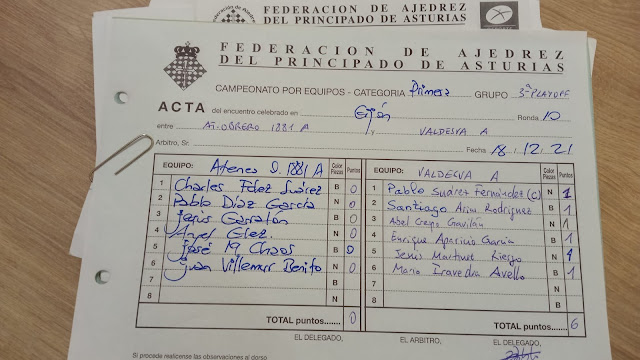 Federación de Ajedrez
FEDERACION DE AJEDREZ
DEL PRINCIPADO DE ASTURIAS
FEDERACION DE AJEDREZ
DEL PRINCIPADO DE ASTURIAS
CAMPEONATO POR EQUIPOS - CATEGORIA Primera GRUPO 3ª PLAYOFF
ACTA del encuentro celebrado en Gijón Ronda 10
entre AT. OBRERO 1881 A y VALDESVA A
Arbitro, Sr. Fecha 18/12.21
EQUIPO: Ateneo O. 1881 A Color Piezas Puntos
1 Charles Fdez Suárez B 0
2 Pablo Díaz García N 0
3 Jesús Garratón B 0
4 Angel Glez. N 0
5 José Mª Chaos B 0
6 Juan Villemur Benito N 0
7 B
8 N
TOTAL puntos....... 0
EQUIPO: VALDESVA A Color Piezas Puntos
1 Pablo Suárez Fernández (C) N 1
2 Santiago Rodríguez B 1
3 Abel Crespo Gavilán N 1
4 Enrique Aparicio García B 1
5 Jesús Martínez Riesgo N 1
6 Mario Iravedra Avello B 1
7 N
8 B
TOTAL puntos....... 6
EL DELEGADO, EL ARBITRO, EL DELEGADO,
Si procede realicense las observaciones al dorso